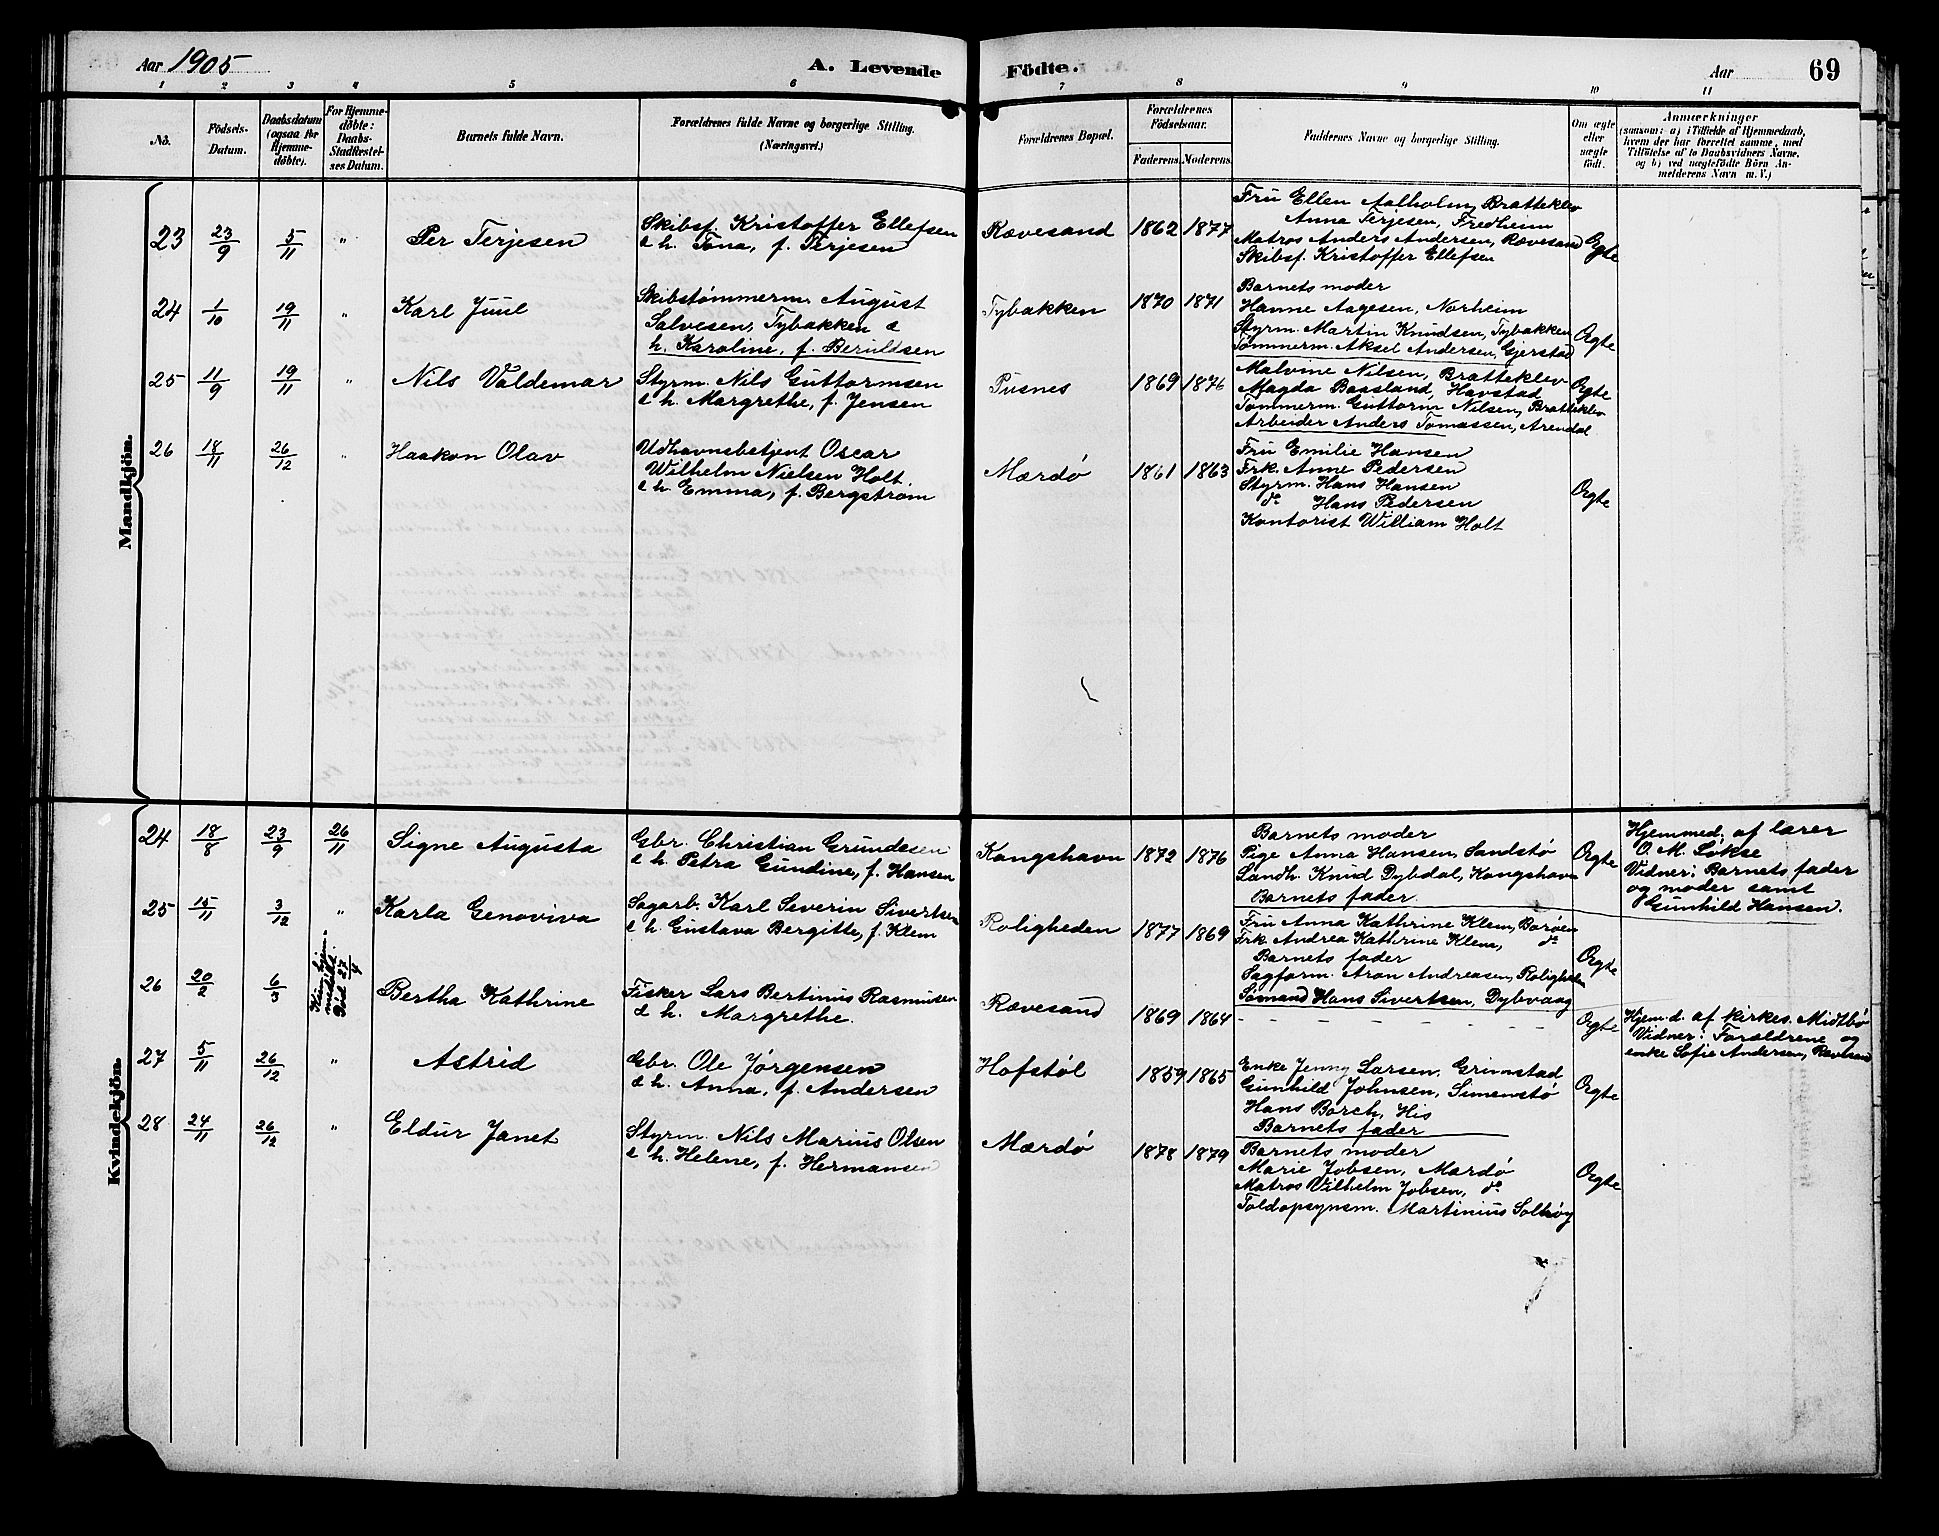 Aar 1905
A. Levende Födte.
Aar
69
1 2 3 4 5 6 7 8 9 10 11
No.
Födsels-Datum.
Daabsdatum (ogsaa for Hjemmedöbte).
For Hjemmedöbte: Daabs-Stadfæstelses Datum.
Barnets fulde Navn.
Forældrenes fulde Navne og borgerlige Stilling.
(Næringsvei.)
Forældrenes Bopæl.
Forældrenes Födselsaar.
Faderens. Moderens.
Faddernes Navne og borgerlige Stilling.
Om ægte eller uægte födt.
Anmærkninger
(saasom: a) i Tilfælde af Hjemmedaab,
hvem der har forrettet samme, med
Tilföielse af to Daabsvidners Navne,
og b) ved uægtefödte Börn Anmelderens Navn m. V.)
Mandkjön.
23 23/9 5/11 " Per Terjesen
Skibsf. Kristoffer Ellefsen
& h. Tona, f. Terjesen
Rævesand 1862 1877
Fru Ellen Aalholm, Bratteklev
Anna Terjesen, Fredheim
Matros Anders Andersen, Rævesand
Skibsf. Kristoffer Ellefsen
Ægte
24 1/10 19/11 " Karl Juul
Skibstømmerm. August
Salvesen, Tybakken &
h. Karoline, f. Berultsen
Tybakken 1870 1871
Barnets moder
Hanne Aagesen, Norheim
Styrm. Martin Knudsen, Tybakken
Tømmerm. Aksel Andersen, Gjerstad
Ægte
25 11/9 19/11 " Nils Valdemar
Styrm. Nils Guttormsen
& h. Margrethe, f. Jensen
Pusnes 1869 1876
Malvine Nilsen, Bratteklev
Magda Baasland, Havstad
Tømmerm. Guttorm Nilsen, Bratteklev
Arbeider Anders Tomassen, Arendal
Ægte
26 18/11 26/12 " Haakon Olav
Udhavnsbetjent Oscar
Wilhelm Nielsen Holt
& h. Emma, f. Bergstrøm
Mærdø 1861 1863
Fru Emilie Hansen
Frk. Anne Pedersen
Styrm. Hans Hansen
do Hans Pedersen
Kontorist William Holt
Ægte
Kvindekjön.
24 18/8 23/9 26/11 Signe Augusta
Gbr. Christian Grundesen
& h. Petra Gundine, f. Hansen
Kongshavn 1872 1876
Barnets moder
Pige Anna Hansen, Sandstø
Landh. Knud Dybdal, Kongshavn
Barnets fader
Ægte
Hjemmed. af lærer
O. M. Løkse
Vidner: Barnets fader
og moder samt
Gunhild Hansen.
25 15/11 3/12 " Karla Genoviva
Sagarb. Karl Severin Sivertsen
& h. Gustava Bergitte, f. Klem
Roligheden 1877 1869
Fru Anna Kathrine Klem, Borøen
Frk. Andrea Kathrine Klem, do
Barnets fader
Sagform. Aron Andreasen, Roligheden
Sømand Hans Sivertsen, Dybvaag
Ægte
26 20/2 6/3 Kun hjemmedøbt. Død 27/4 Bertha Kathrine
Fisker Lars Bertinus Rasmusen
& h. Margrethe.
Rævesand 1869 1864
Ægte
Hjem.d. af kirkes. Midtbø
Vidner: Forældrene og
enke Sofie Andersen, Rævesand
27 5/11 26/12 " Astrid
Gbr. Ole Jørgensen
& h. Anna, f. Andersen
Hofstøl 1859 1865
Enke Jenny Larsen, Grimstad
Gunhild Johnsen, Simenstø
Hans Borch, His
Barnets fader
Ægte
28 24/11 26/12 " Eldur Janet
Styrm. Nils Marius Olsen
& h. Helene, f. Hermansen
Mærdø 1878 1879
Barnets moder
Marie Jobsen, Mærdø
Matros Vilhelm Jobsen, do
Toldopsynsm. Martinius Solhøy
Ægte